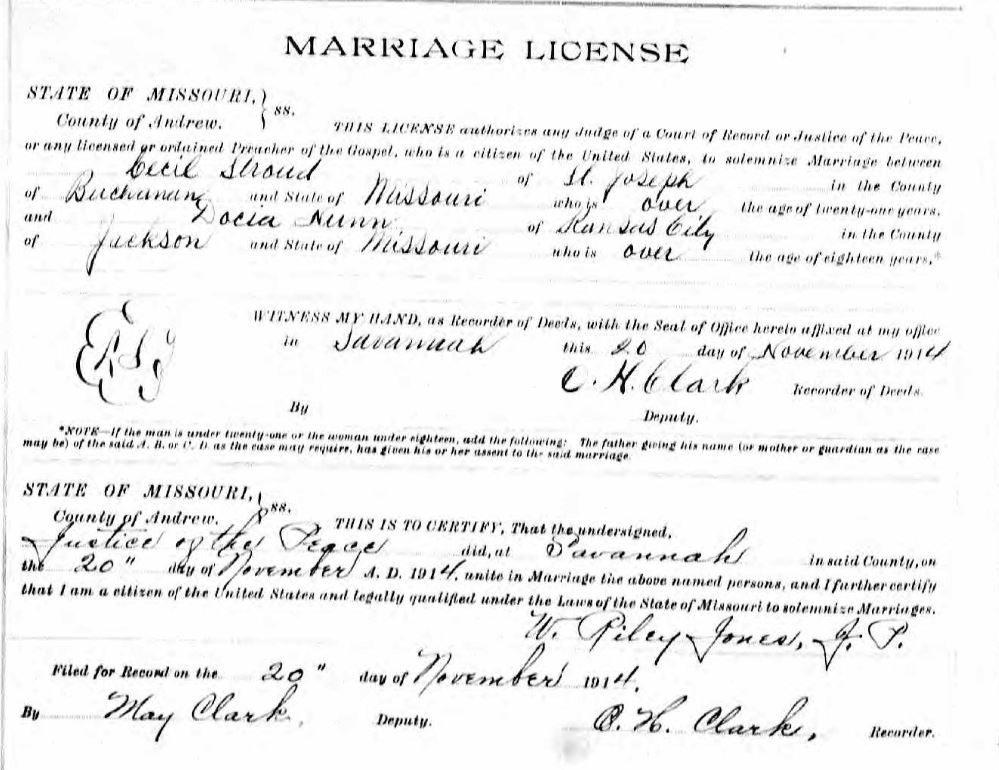 MARRIAGE LICENSE
STATE OF MISSOURI, } ss.
County of Andrew.
THIS LICENSE authorizes any Judge of a Court of Record or Justice of the Peace,
or any licensed or ordained Preacher of the Gospel, who is a citizen of the United States, to solemnize Marriage between
Cecil Stroud of St. Joseph in the County
of Buchanan and State of Missouri who is over the age of twenty-one years,
and Docia Nunn of Kansas City in the County
of Jackson and State of Missouri who is over the age of eighteen years.*
WITNESS MY HAND, as Recorder of Deeds, with the Seal of Office hereto affixed at my office
in Savannah this 20 day of November 1914
C. H. Clark Recorder of Deeds.
By Deputy.
*NOTE—If the man is under twenty-one or the woman under eighteen, add the following: The father giving his name (or mother or guardian as the case
may be) of the said A. B. or C. D. as the case may require, has given his or her assent to the said marriage.
STATE OF MISSOURI, } ss.
County of Andrew.
THIS IS TO CERTIFY, That the undersigned,
Justice of the Peace did, at Savannah in said County, on
the 20" day of November A. D. 1914, unite in Marriage the above named persons, and I further certify
that I am a citizen of the United States and legally qualified under the Laws of the State of Missouri to solemnize Marriages.
W. Riley Jones, J. P.
Filed for Record on the 20" day of November 1914.
By May Clark, Deputy. C. H. Clark, Recorder.